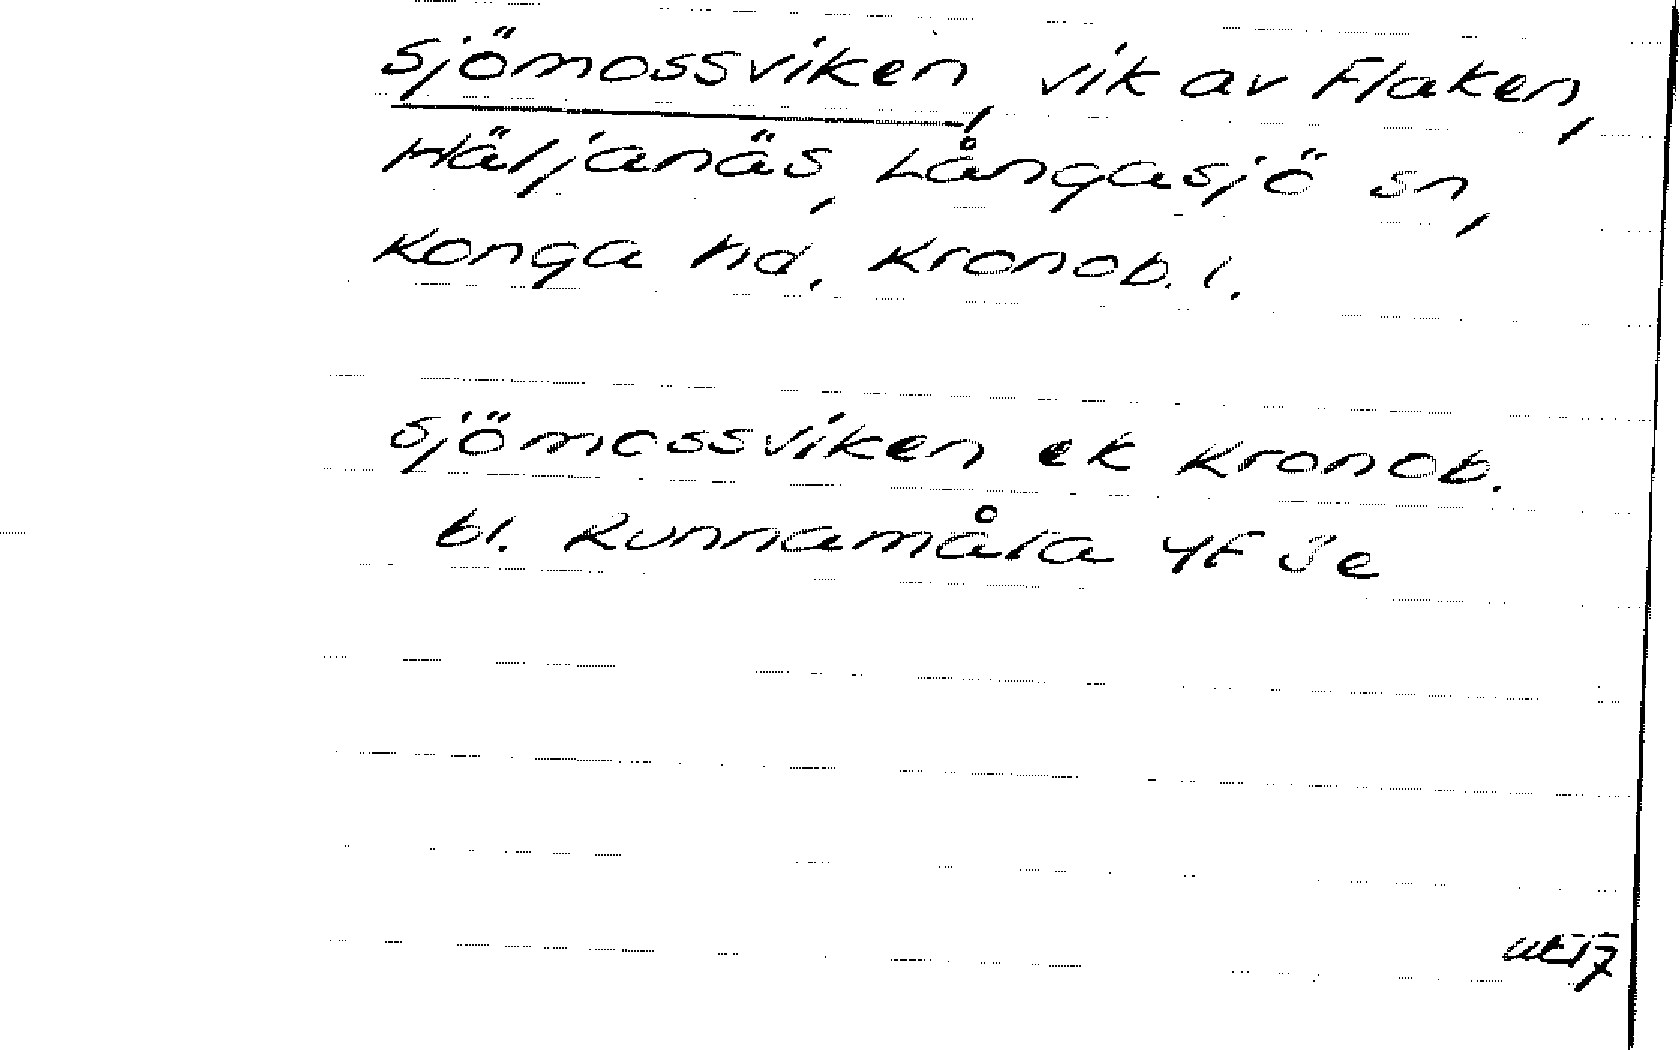 Sjömossviken, vik av Flaken,
Häljanäs, Långasjö sn,
Konga hd, Kronob. l.
Sjömossviken ek Kronob.
bl. Runnamåla 4F 3e